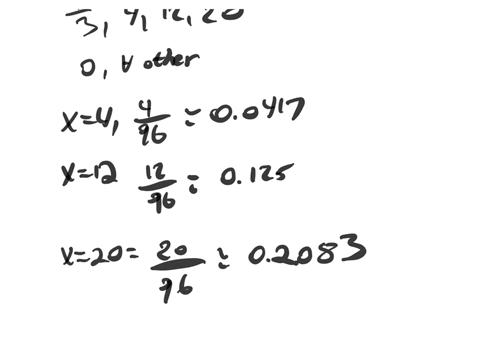 3, 4, 12, 20
0, ∀ other
x=4, 4/96 ≈ 0.0417
x=12 12/96 ≈ 0.125
x=20= 20/96 ≈ 0.2083